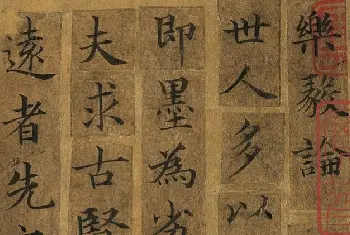 樂毅論
世人多以
即墨為劣
夫求古賢
遠者先